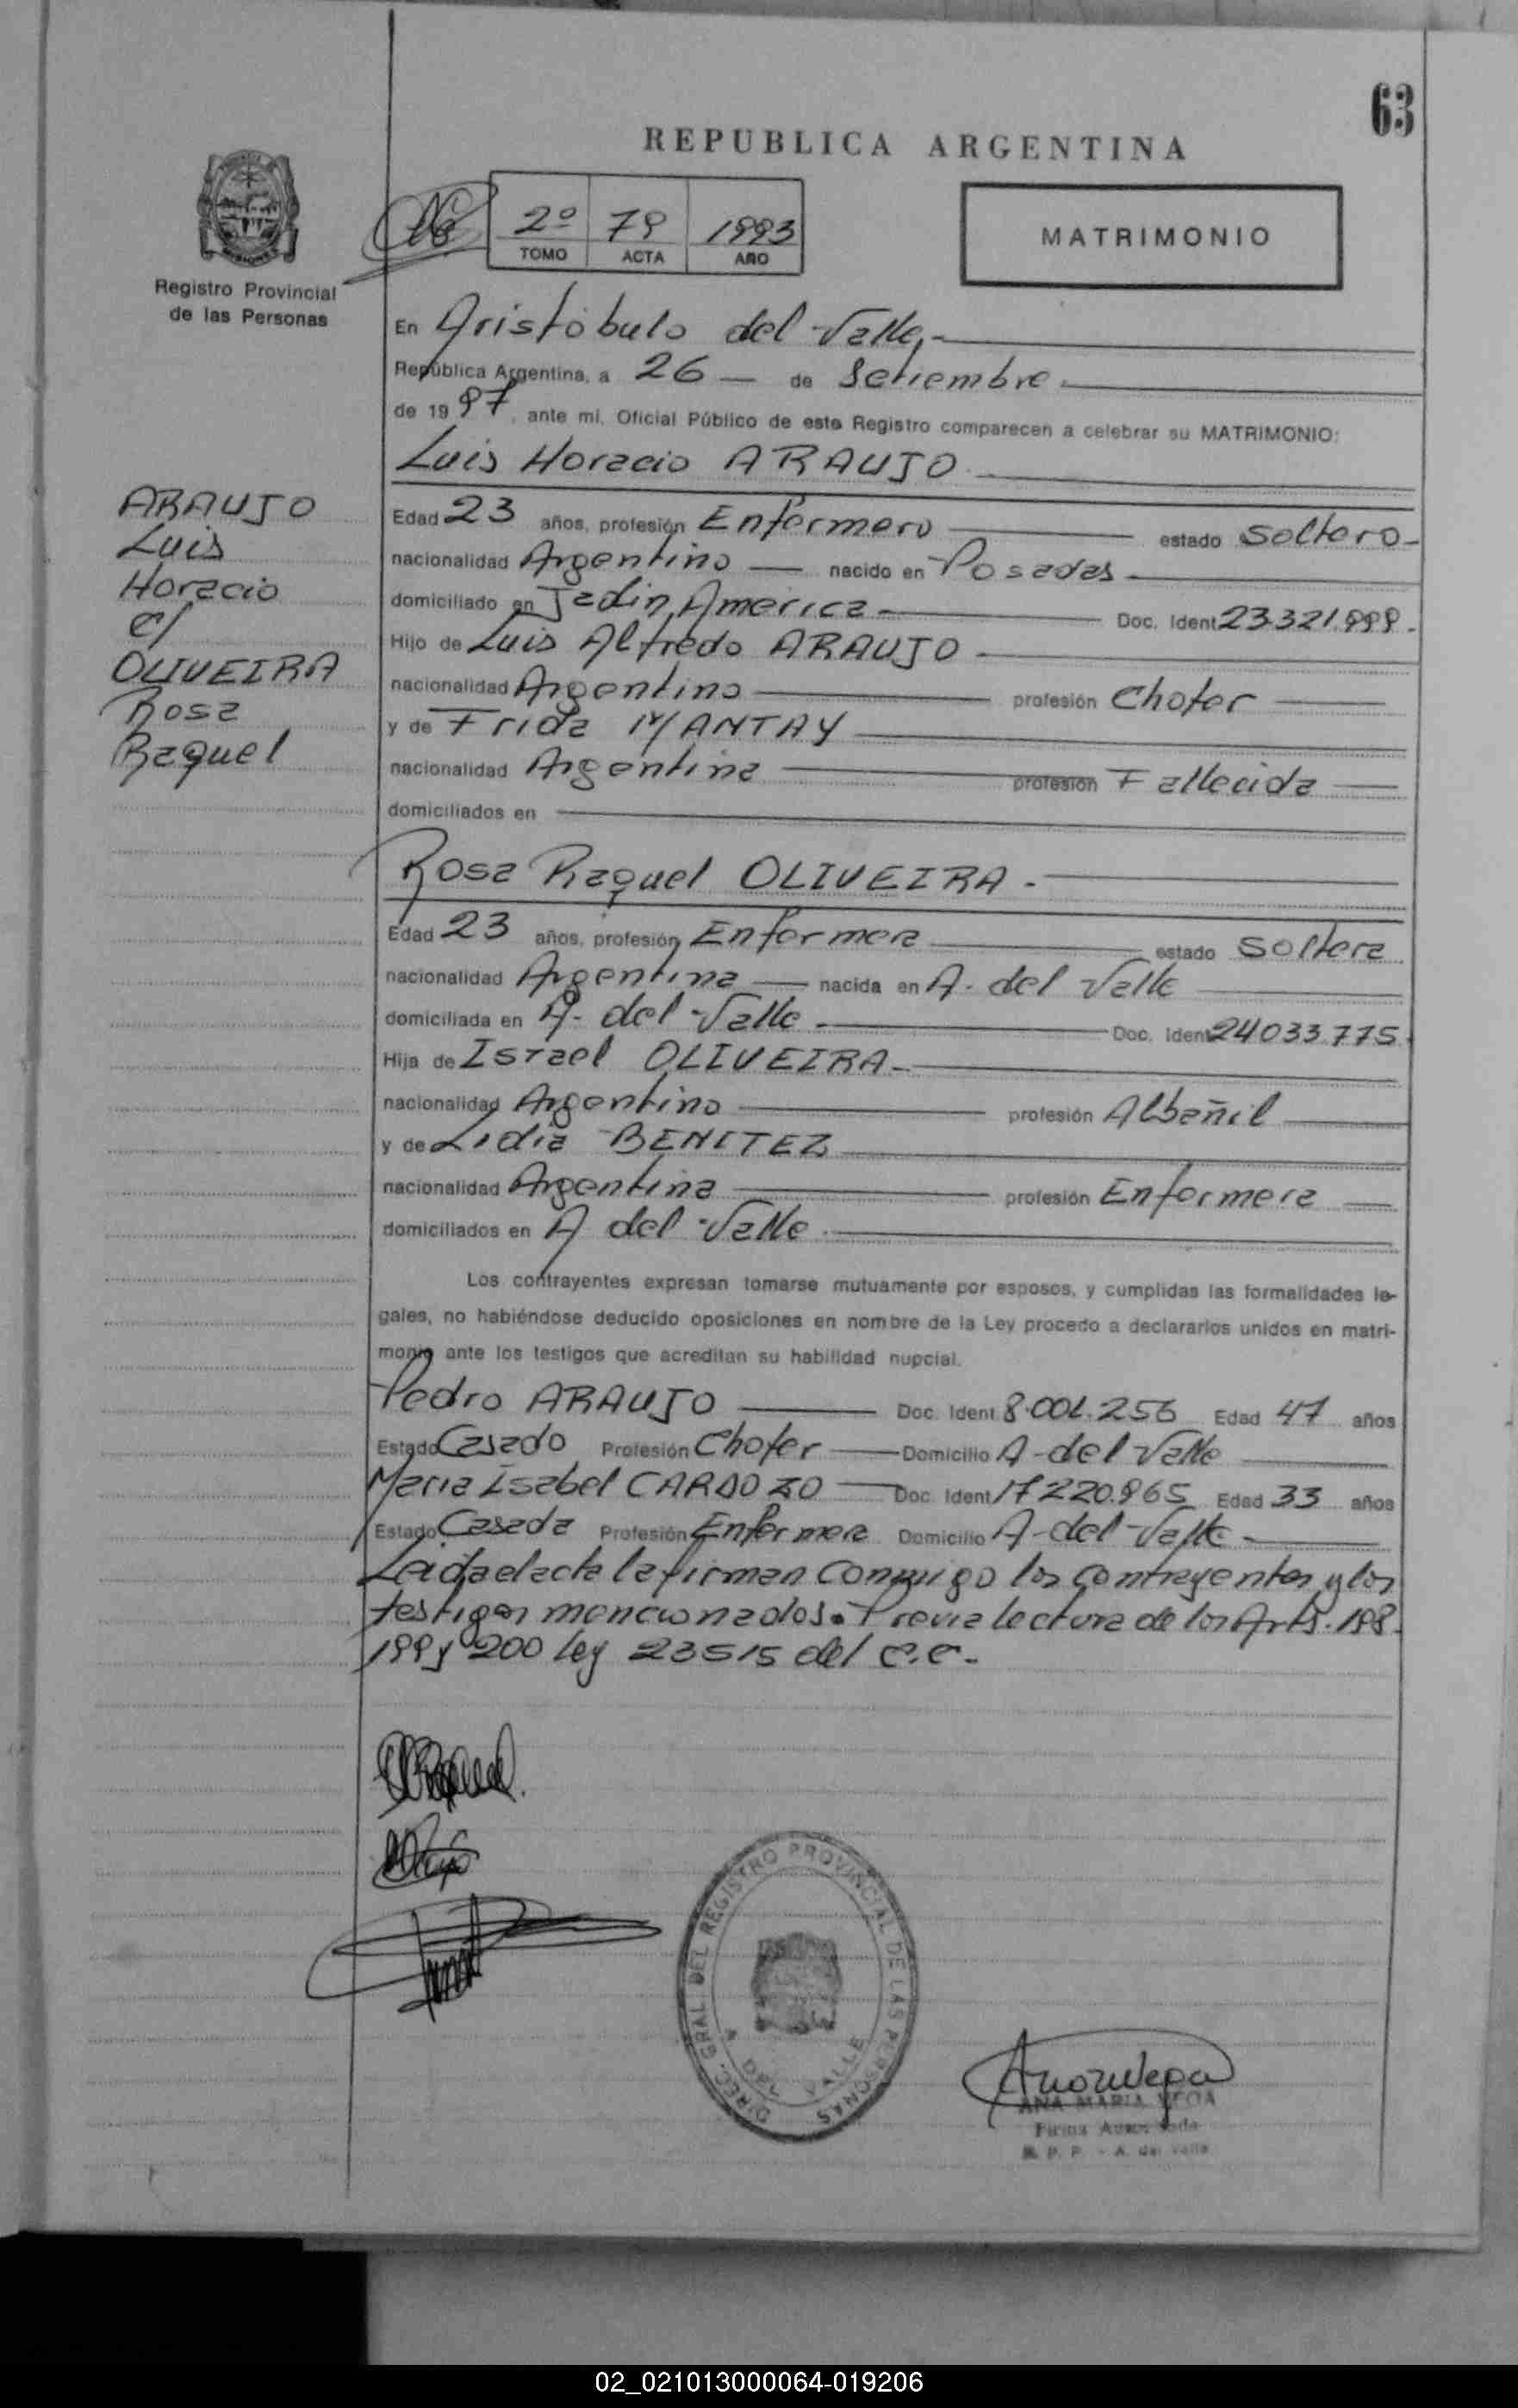 63
REPUBLICA ARGENTINA
2º 79 1993
TOMO ACTA AÑO
MATRIMONIO
MISIONES
Registro Provincial
de las Personas
En Aristóbulo del Valle,-
República Argentina, a 26 — de Setiembre
de 1997, ante mí, Oficial Público de este Registro comparecen a celebrar su MATRIMONIO:
Luis Horacio ARAUJO
ARAUJO
Luis
Horacio
c/
OLIVEIRA
Rosa
Raquel
Edad 23 años, profesión Enfermero estado Soltero-
nacionalidad Argentino — nacido en Posadas
domiciliado en Jadin America Doc. Ident 23.321.999.
Hijo de Luis Alfredo ARAUJO
nacionalidad Argentino profesión Chofer
y de Frida MANTAY
nacionalidad Argentina profesión Fallecida
domiciliados en
Rosa Raquel OLIVEIRA.
Edad 23 años, profesión Enfermera estado Soltera
nacionalidad Argentina — nacida en A. del Valle
domiciliada en A. del Valle Doc. Ident 24033.775.
Hija de Israel OLIVEIRA
nacionalidad Argentino profesión Albañil
y de Lidia BENITEZ
nacionalidad Argentina profesión Enfermera
domiciliados en A del Valle
Los contrayentes expresan tomarse mutuamente por esposos, y cumplidas las formalidades le-
gales, no habiéndose deducido oposiciones en nombre de la Ley procedo a declararlos unidos en matri-
monio ante los testigos que acreditan su habilidad nupcial.
Pedro ARAUJO Doc. Ident 8.001.256 Edad 47 años
Estado Casado Profesión Chofer Domicilio A-del Valle
Maria Isabel CARDOZO Doc. Ident 17220.965 Edad 33 años
Estado Casada Profesión Enfermera Domicilio A-del Valle
Leida el acta la firman conmigo los contrayentes y los
testigos mencionados. Previa lectura de los Arts. 198.
199 y 200 Ley 23515 del C.C.
DIREC. GRAL. DEL REGISTRO PROVINCIAL DE LAS PERSONAS
A DEL VALLE
ANA MARIA VEGA
Firma Autorizada
R. P. P. - A. del Valle
02_021013000064-019206